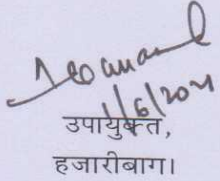 1/6/2021
उपायुक्त,
हजारीबाग।